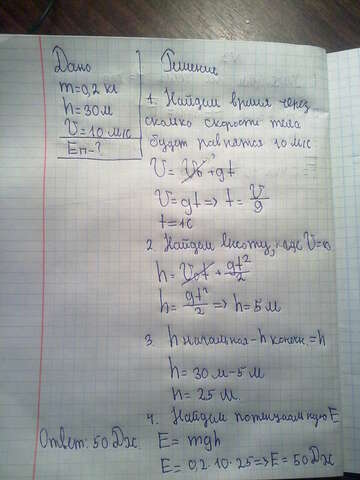 Дано
m=0,2 кг
h=30м
V=10 м/с
Еп-?
Решение
1. Найдем время через
сколько скорости тела
будет равнятся 10 м/с
V = V₀ + gt
V = gt => t = V/g
t=1с
2. Найдем высоту, где V=10
h = V₀t + gt²/2
h = gt²/2 => h = 5 м
3. h начальная - h конечн. = h
h = 30 м - 5 м
h = 25 м.
4. Найдем потенциальную Е
E = mgh
E = 0,2 · 10 · 25 => E = 50 Дж
Ответ: 50 Дж.